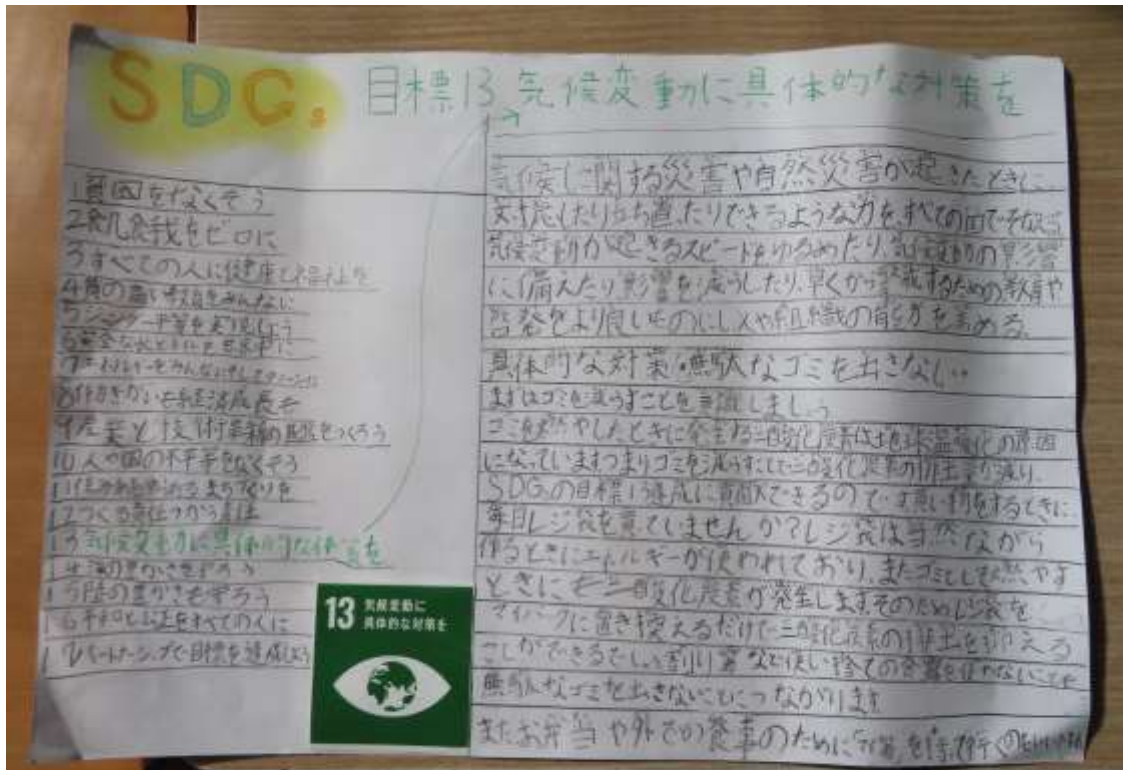 SDGs 目標13 気候変動に具体的な対策を
1貧困をなくそう
2飢餓をゼロに
3すべての人に健康と福祉を
4質の高い教育をみんなに
5ジェンダー平等を実現しよう
6安全な水とトイレを世界中に
8働きがいも経済成長も
9産業と技術革新の基盤をつくろう
10人や国の不平等をなくそう
11住み続けられるまちづくりを
12つくる責任つかう責任
13気候変動に具体的な
14海の豊かさを守ろう
15陸の豊かさも守ろう
16平和と公正をすべての人に
17パートナーシップで目標を達成しよう
13 気候変動に
具体的な対策を
気候に関する災害や自然災害が起きたときに、
対応したり立ち直ったりできるような力を、すべての国でそなえ
気候変動が起きるスピードをゆるめたり、気候変動の影響
に備えたり影響を減らしたり、早くから するための教育や
啓発をより良いものにし人や組織の能力を高める。
具体的な対策・無駄なゴミを出さない
まずはゴミを減らすことを意識しましょう
ゴミを燃やしたときに発生する二酸化炭素は地球温暖化の原因
になっていますつまりゴミを減らすことで二酸化炭素の排出量が減り、
SDGsの目標13達成に貢献できるのです買い物をするときに
毎日レジ袋を買ていませんか?レジ袋は当然ながら
作るときにエネルギーが使われており、またゴミとして燃やす
ときに 二酸化炭素が発生しますそのためレジ袋を
マイバックに置き換えるだけで二酸化炭素の排出を抑える
ことができるでしょう割り箸など使い捨ての容器を使わないことも
無駄なゴミを出さないことにつながります
またお弁当や外での食事のために を持て行く